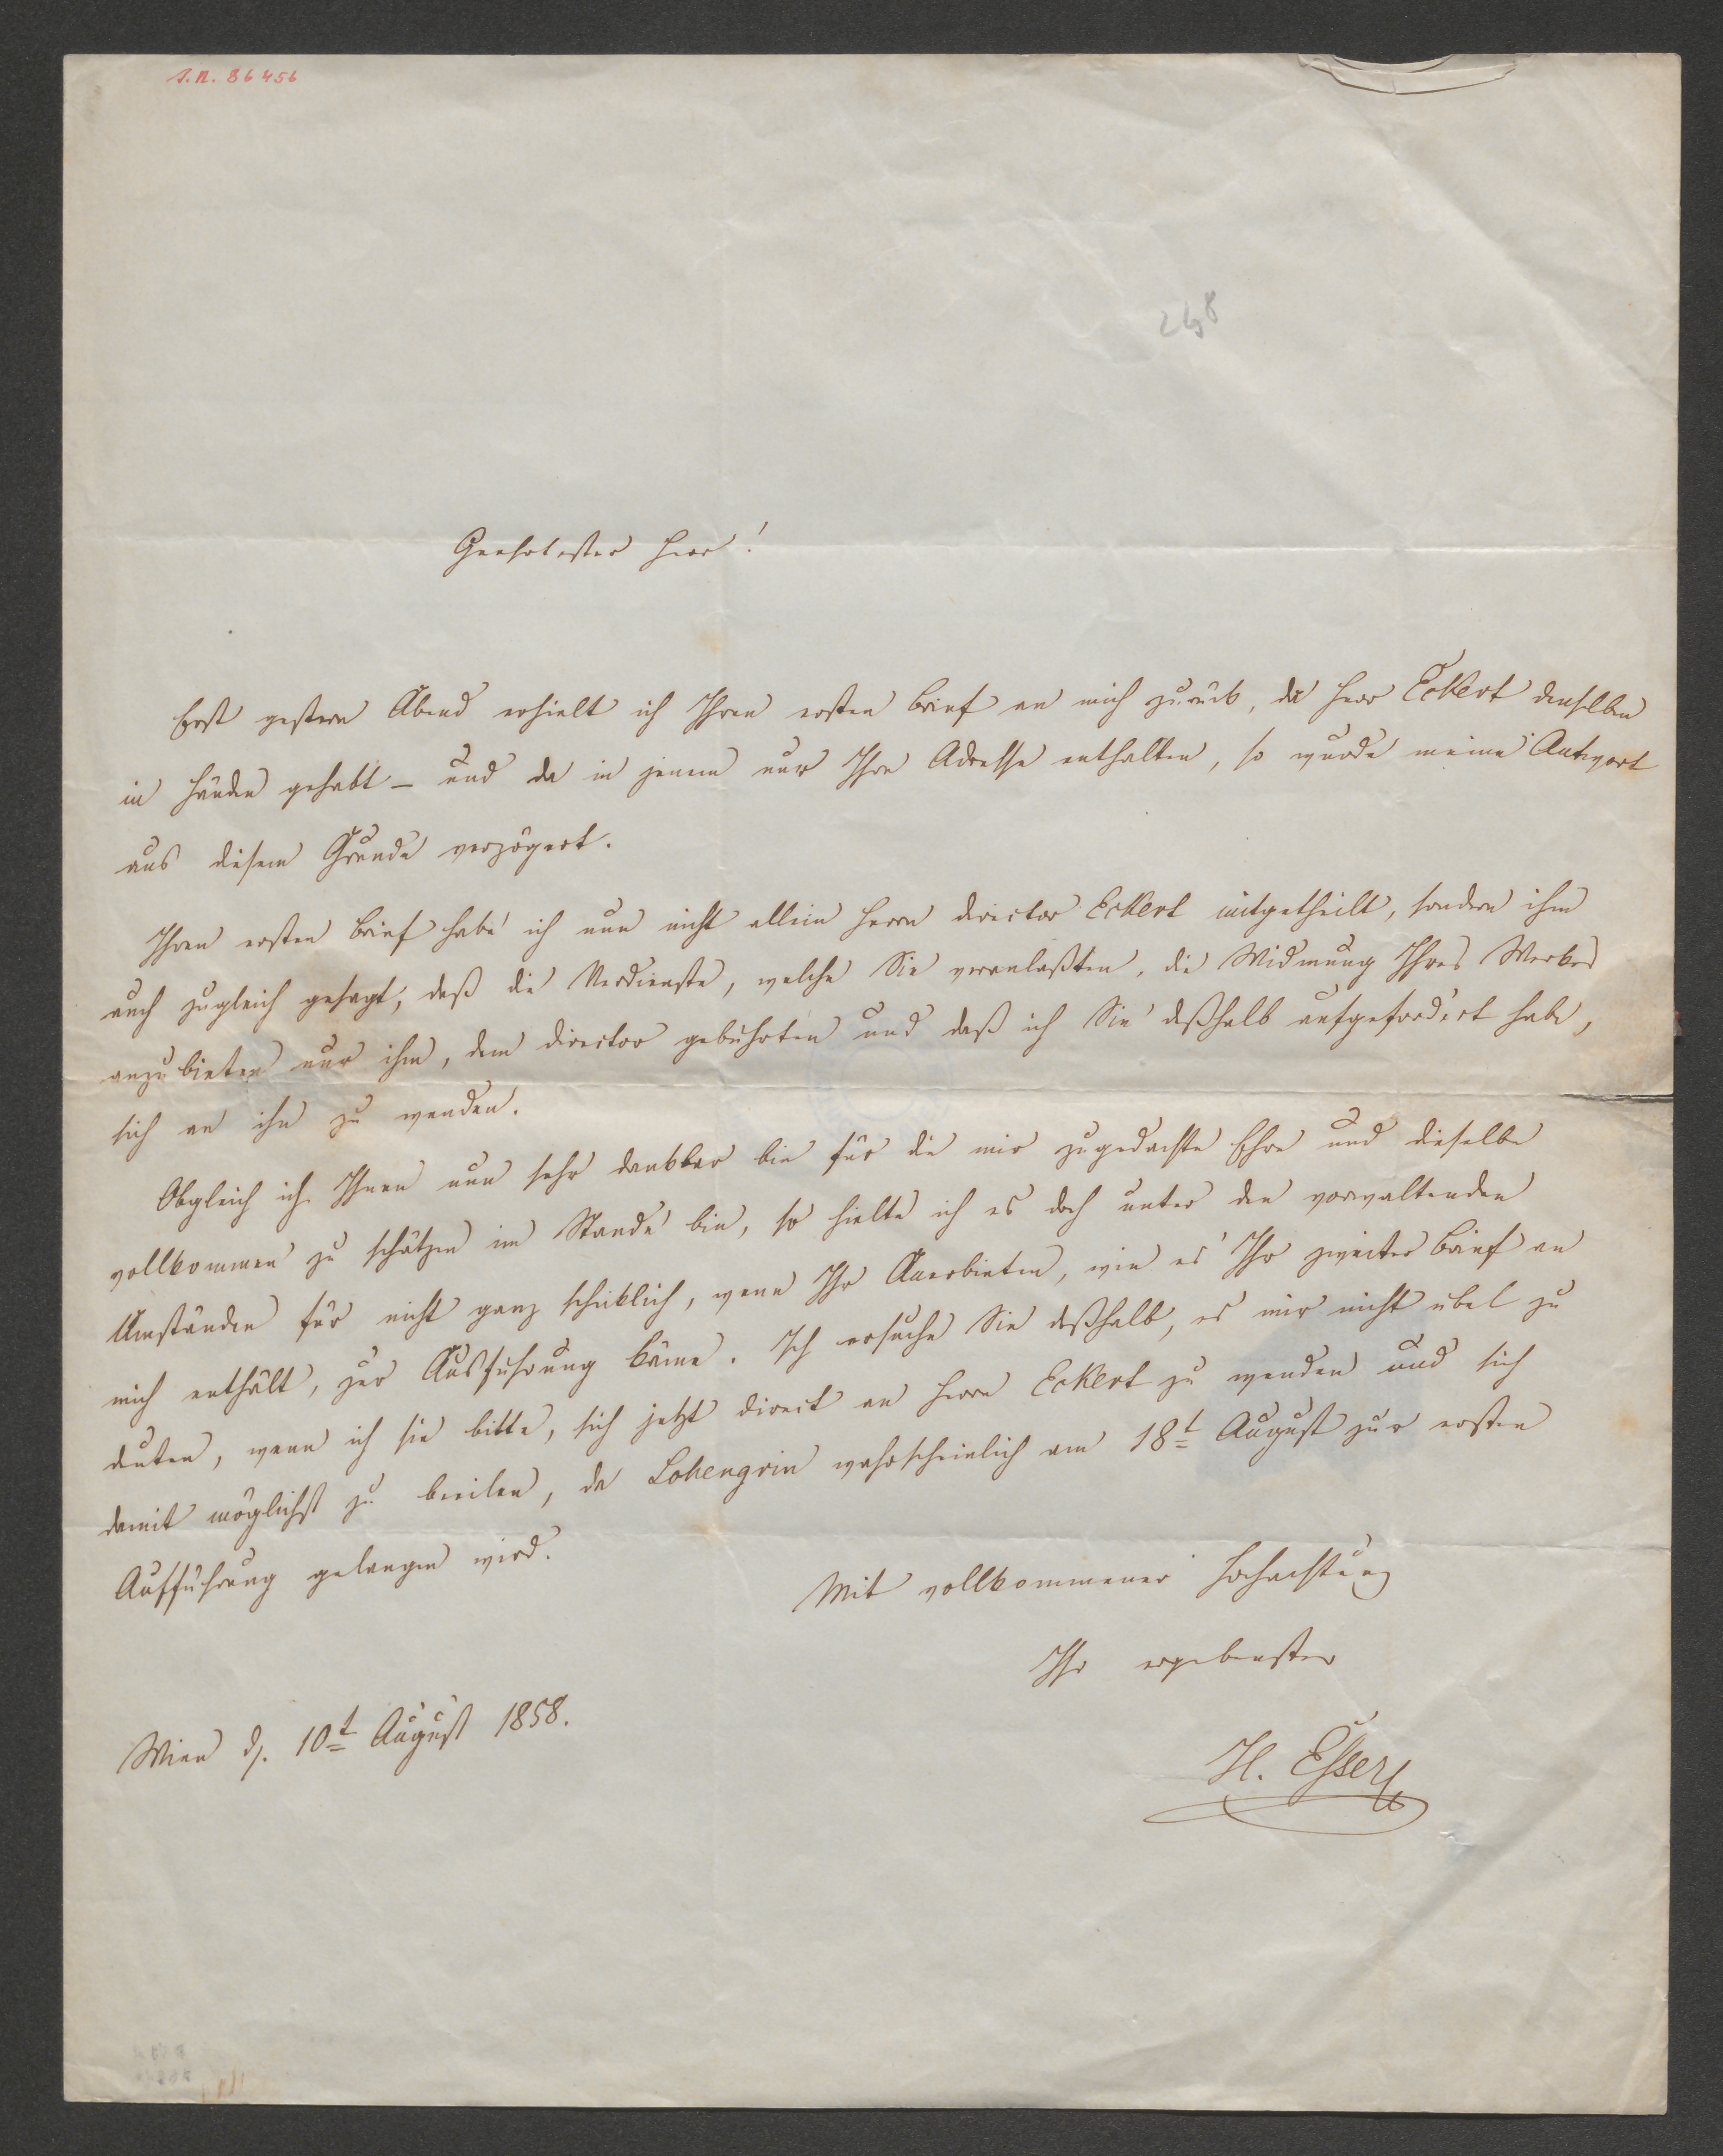 I.N. 86456
268
Geehrtester Herr!
Erst gestern Abend erhielt ich Ihren ersten Brief an mich zurück, da Herr Eckert denselben
in Händen gehabt – und da in jenem nur Ihre Adresse enthalten, so wurde meine Antwort
aus diesem Grunde verzögert.
Ihren ersten Brief habe ich nun nicht allein Herrn Director Eckert mitgetheilt, sondern ihm
auch zugleich gesagt, daß die Verdienste, welche Sie veranlaßten, die Widmung Ihres Werkes
anzubieten nur ihm, dem Director gebührten und daß ich Sie deßhalb aufgefordert habe,
sich an ihn zu wenden.
Obgleich ich Ihnen nun sehr dankbar bin für die mir zugedachte Ehre und dieselbe
vollkommen zu schätzen im Stande bin, so hielte ich es doch unter den vorwaltenden
Umständen für nicht ganz schicklich, wenn Ihr Anerbieten, wie es Ihr zweiter Brief an
mich enthält, zur Ausführung käme. Ich ersuche Sie deßhalb, es mir nicht übel zu
deuten, wenn ich sie bitte, sich jetzt direct an Herrn Eckert zu wenden und sich
damit möglichst zu beeilen, da Lohengrin wahrscheinlich am 18t August zur ersten
Aufführung gelangen wird.
Mit vollkommener Hochachtung
Ihr ergebenster
H. Esser
Wien d. 10t August 1858.